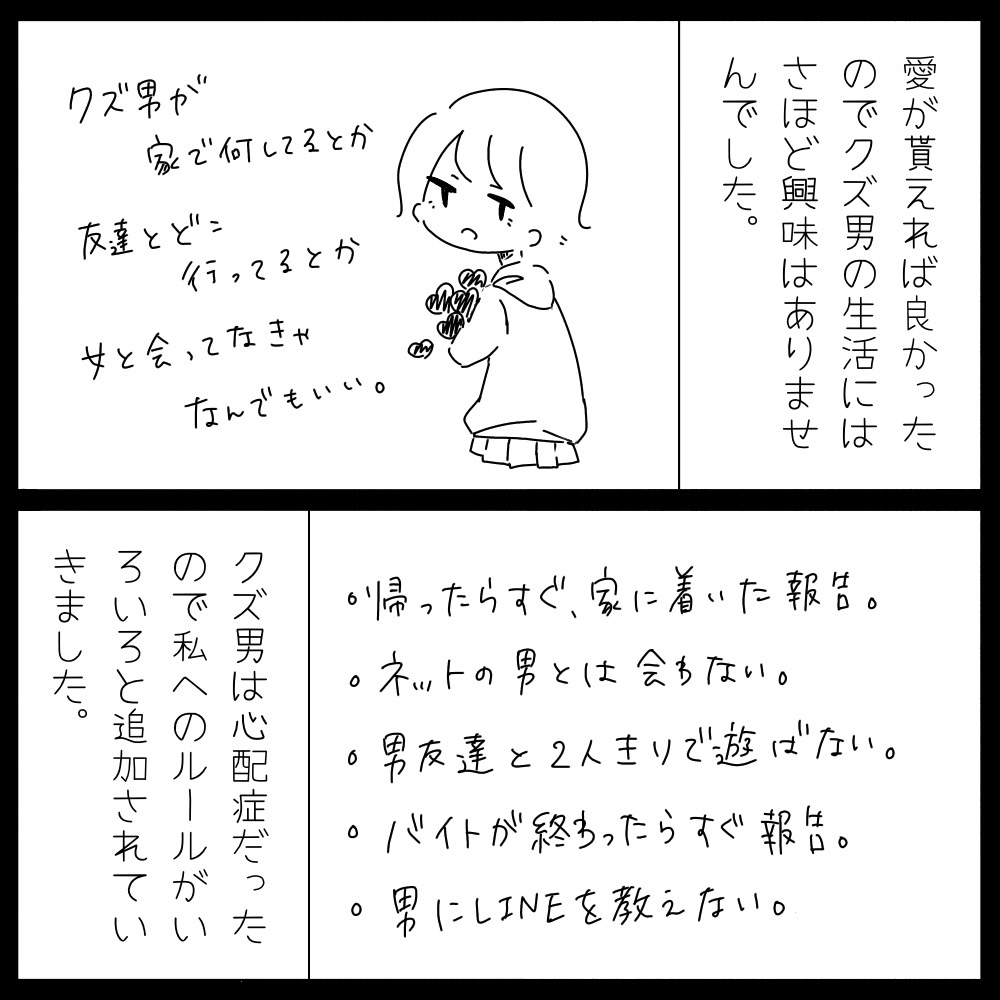 愛が貰えれば良かった
のでクズ男の生活には
さほど興味はありませ
んでした。
クズ男が
家で何してるとか
友達とどこ
行ってるとか
女と会ってなきゃ
なんでもいい。
◦帰ったらすぐ、家に着いた報告。
◦ネットの男とは会わない。
◦男友達と2人きりで遊ばない。
◦バイトが終わったらすぐ報告。
◦男にLINEを教えない。
クズ男は心配症だった
ので私へのルールがい
ろいろと追加されてい
きました。